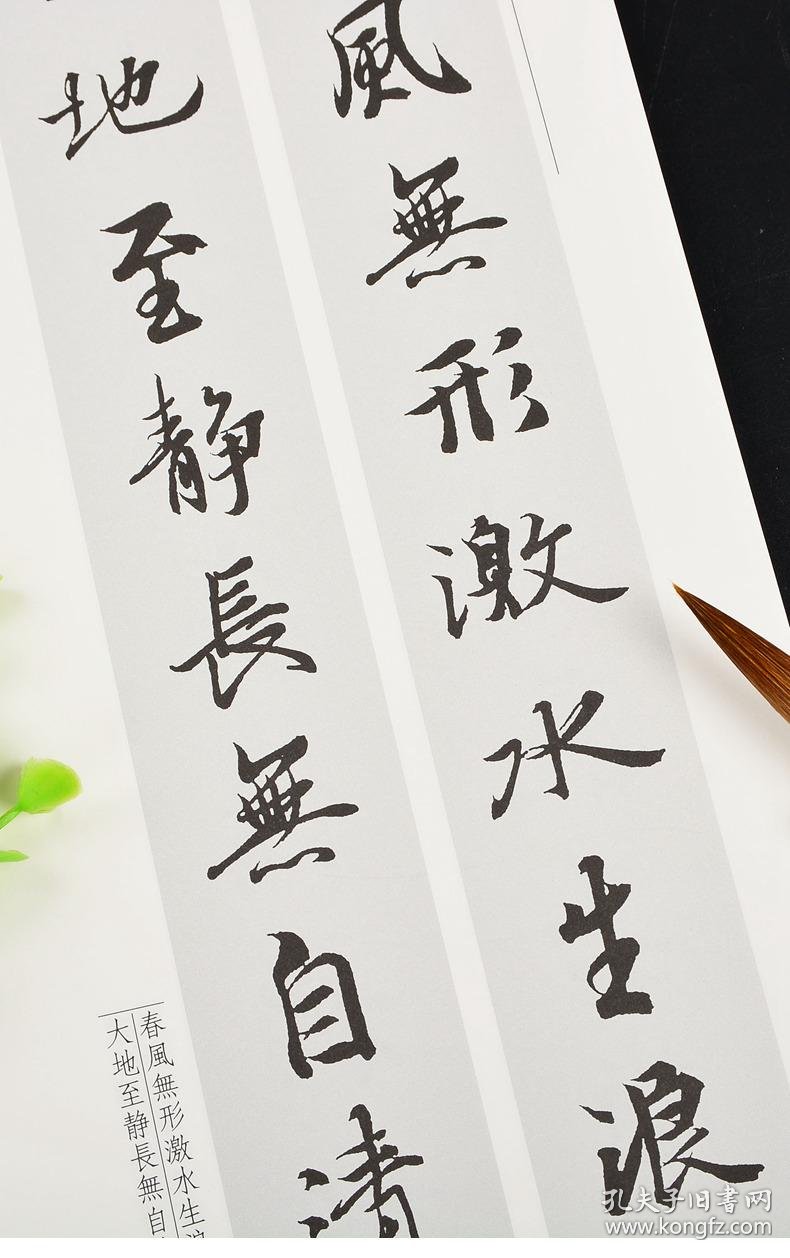 風無形激水生浪
地至静長無自清
春風無形激水生浪
大地至静長無自
孔夫子旧书网
www.kongfz.com